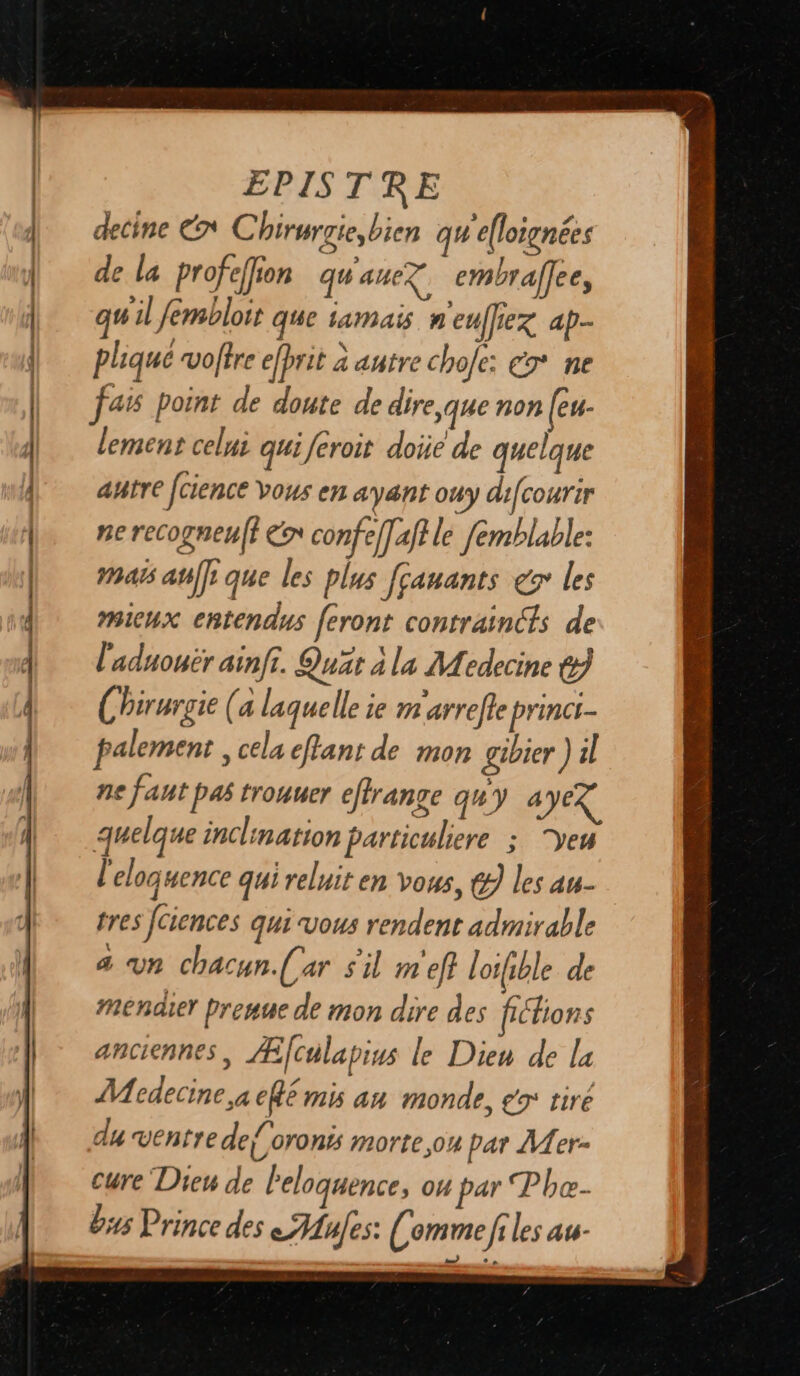 EPISTRE
decine & Chirurgie, bien qu'esloignées
de la profession qu'auez embrassee,
qu'il sembloit que iamais n'eussiez ap-
pliqué vostre esprit à autre chose: & ne
fais point de doute de dire, que non seu-
lement celui qui seroit doüé de quelque
autre science vous en ayant ouy discourir
ne recogneust & confessast le semblable:
mais aussi que les plus sçauants & les
mieux entendus seront contraincts de
l'aduouër ainsi. Quāt à la Medecine &
Chirurgie (à laquelle ie m'arreste princi-
palement , cela estant de mon gibier ) il
ne faut pas trouuer estrange qu'y ayez
quelque inclination particuliere ; veu
l'eloquence qui reluit en vous, & les au-
tres sciences qui vous rendent admirable
à vn chacun. Car s'il m'est loisible de
mendier preuue de mon dire des fictions
anciennes, Æsculapius le Dieu de la
Medecine, a esté mis au monde, & tiré
du ventre de Coronis morte, ou par Mer-
cure Dieu de l'eloquence, ou par Phœ-
bus Prince des Muses: Comme si les au-